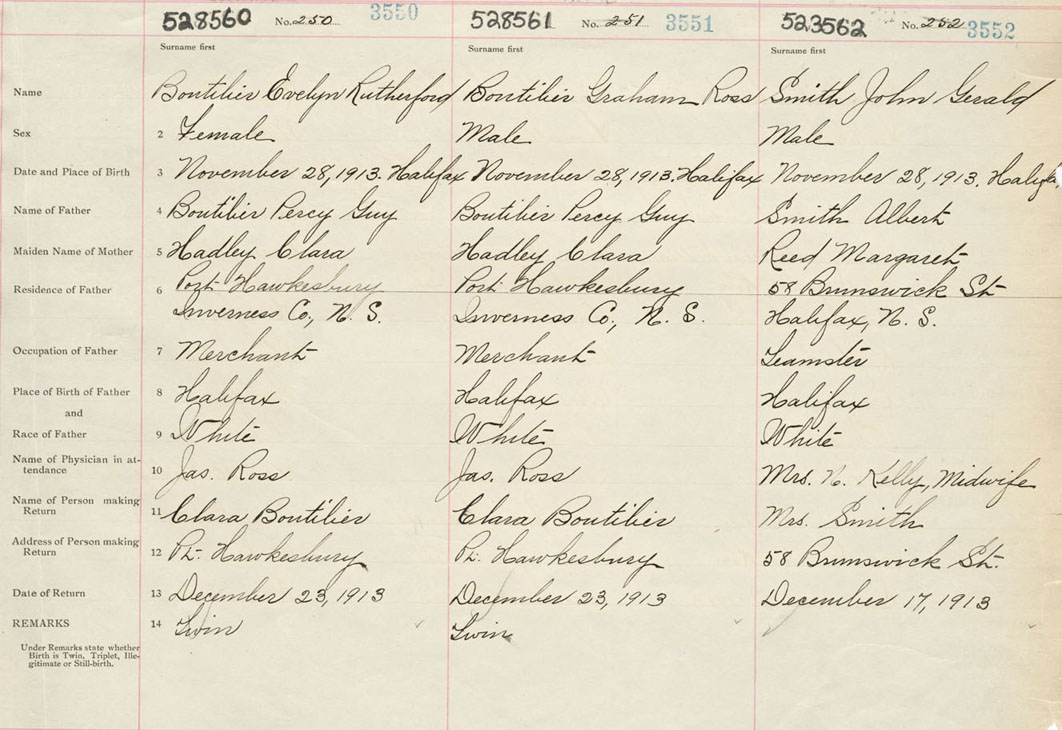 528560 No. 250 3550 528561 No. 251 3551 523562 No. 252 3552
Surname first Surname first Surname first
Name Boutilier Evelyn Rutherford Boutilier Graham Ross Smith John Gerald
Sex 2 Female Male Male
Date and Place of Birth 3 November 28, 1913. Halifax November 28, 1913. Halifax November 28, 1913. Halifax
Name of Father 4 Boutilier Percy Guy Boutilier Percy Guy Smith Albert
Maiden Name of Mother 5 Hadley Clara Hadley Clara Reed Margaret
Residence of Father 6 Port Hawkesbury Port Hawkesbury 58 Brunswick St.
Inverness Co., N. S. Inverness Co., N. S. Halifax, N. S.
Occupation of Father 7 Merchant Merchant Teamster
Place of Birth of Father 8 Halifax Halifax Halifax
and
Race of Father 9 White White White
Name of Physician in at-
tendance 10 Jas. Ross Jas. Ross Mrs. N. Kelly, Midwife
Name of Person making
Return 11 Clara Boutilier Clara Boutilier Mrs. Smith
Address of Person making
Return 12 Pt. Hawkesbury Pt. Hawkesbury 58 Brunswick St.
Date of Return 13 December 23, 1913 December 23, 1913 December 17, 1913
REMARKS 14 Twin Twin
Under Remarks state whether
Birth is Twin, Triplet, Ille-
gitimate or Still-birth.